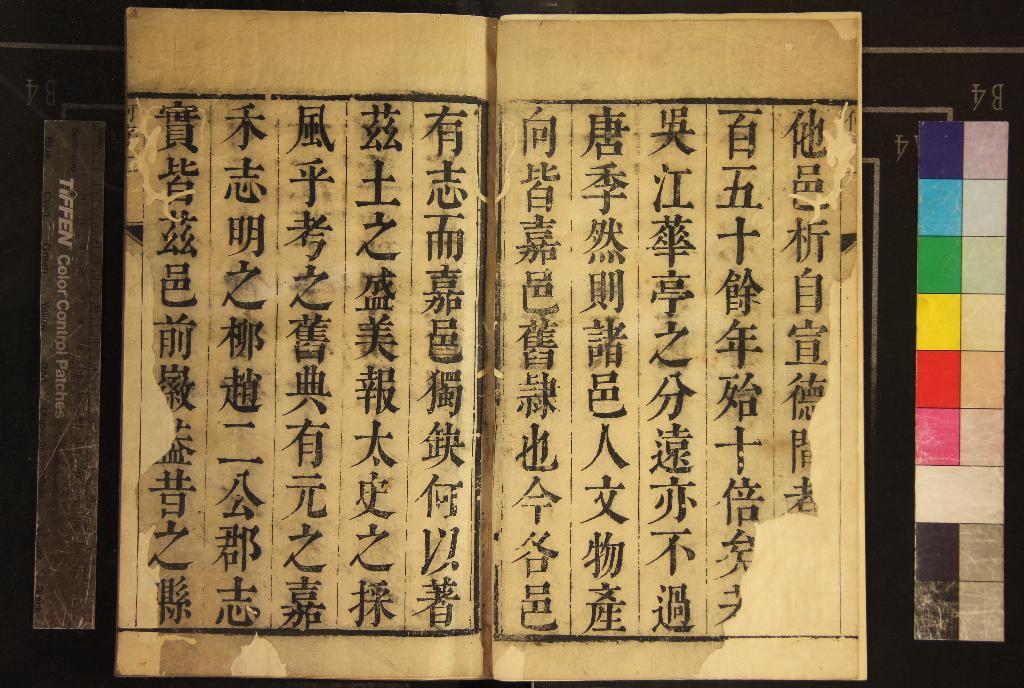 他邑析自宣德間者
百五十餘年殆十倍矣
吳江華亭之分遠亦不過
唐季然則諸邑人文物產
向皆嘉邑舊隷也今各邑
有志而嘉邑獨缺何以著
茲土之盛美報太史之採
風乎考之舊典有元之嘉
禾志明之柳趙二公郡志
實皆茲邑前徽葢昔之縣
TIFFEN Color Control Patches
B4
B4